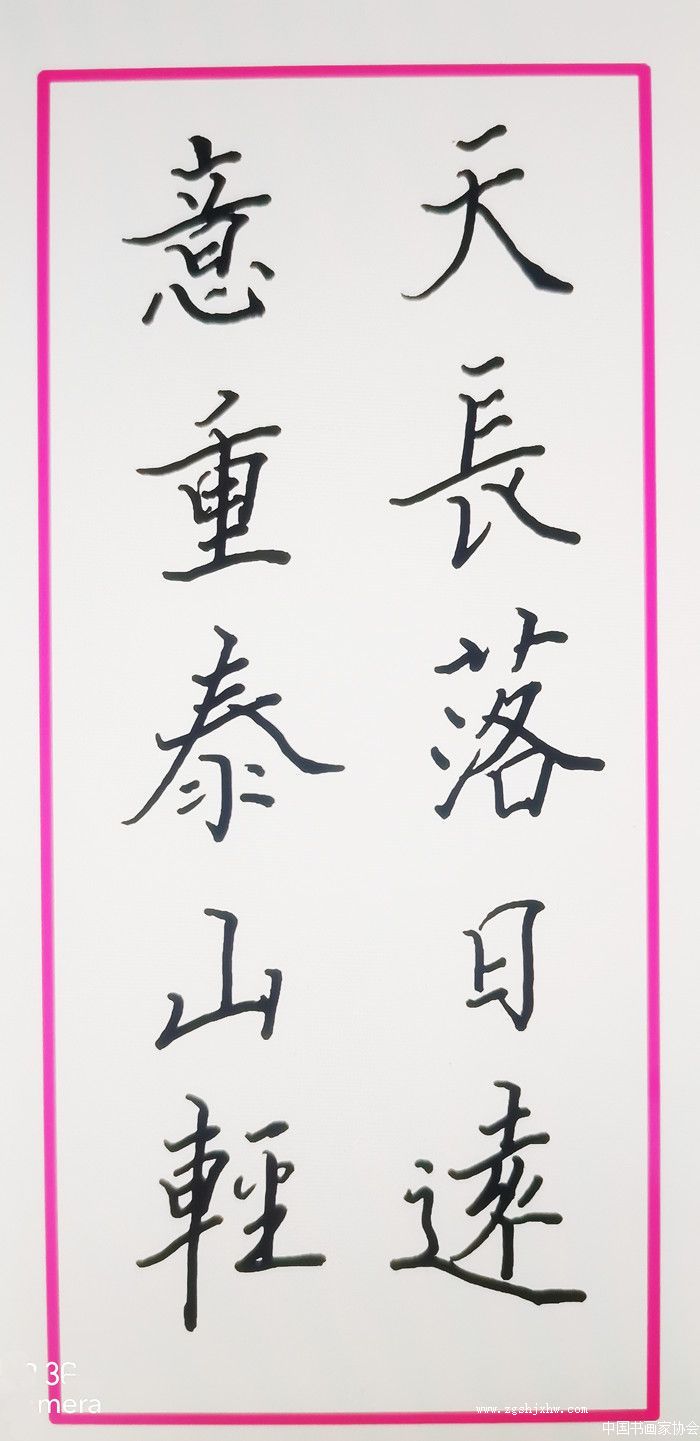 天長落日遠
意重泰山輕
www.zgshjxhw.com
中国书画家协会